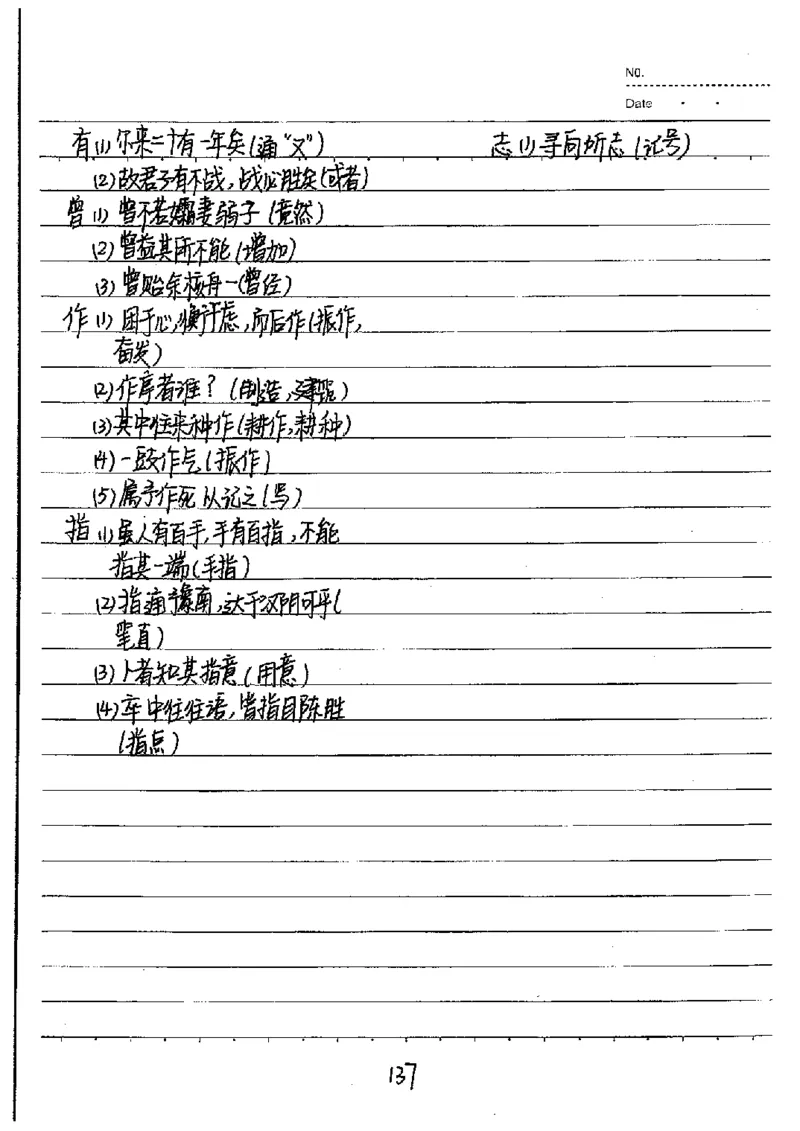 NO.
Date
有(1)尔来二十有一年矣(通“又”) 志(1)寻向所志(记号)
(2)故君子有不战,战必胜矣(或者)
曾(1)曾不若孀妻弱子(竟然)
(2)曾益其所不能(增加)
(3)曾贻余核舟一(曾经)
作(1)困于心,衡于虑,而后作(振作,
奋发)
(2)作亭者谁?(制造,建筑)
(3)其中往来种作(耕作,耕种)
(4)一鼓作气(振作)
(5)属予作死以记之(写)
指(1)虽人有百手,手有百指,不能
指其一端(手指)
(2)指通豫南,达于汉阴可乎(
笔直)
(3)卜者知其指意(用意)
(4)卒中往往语,皆指目陈胜
(指点)
137